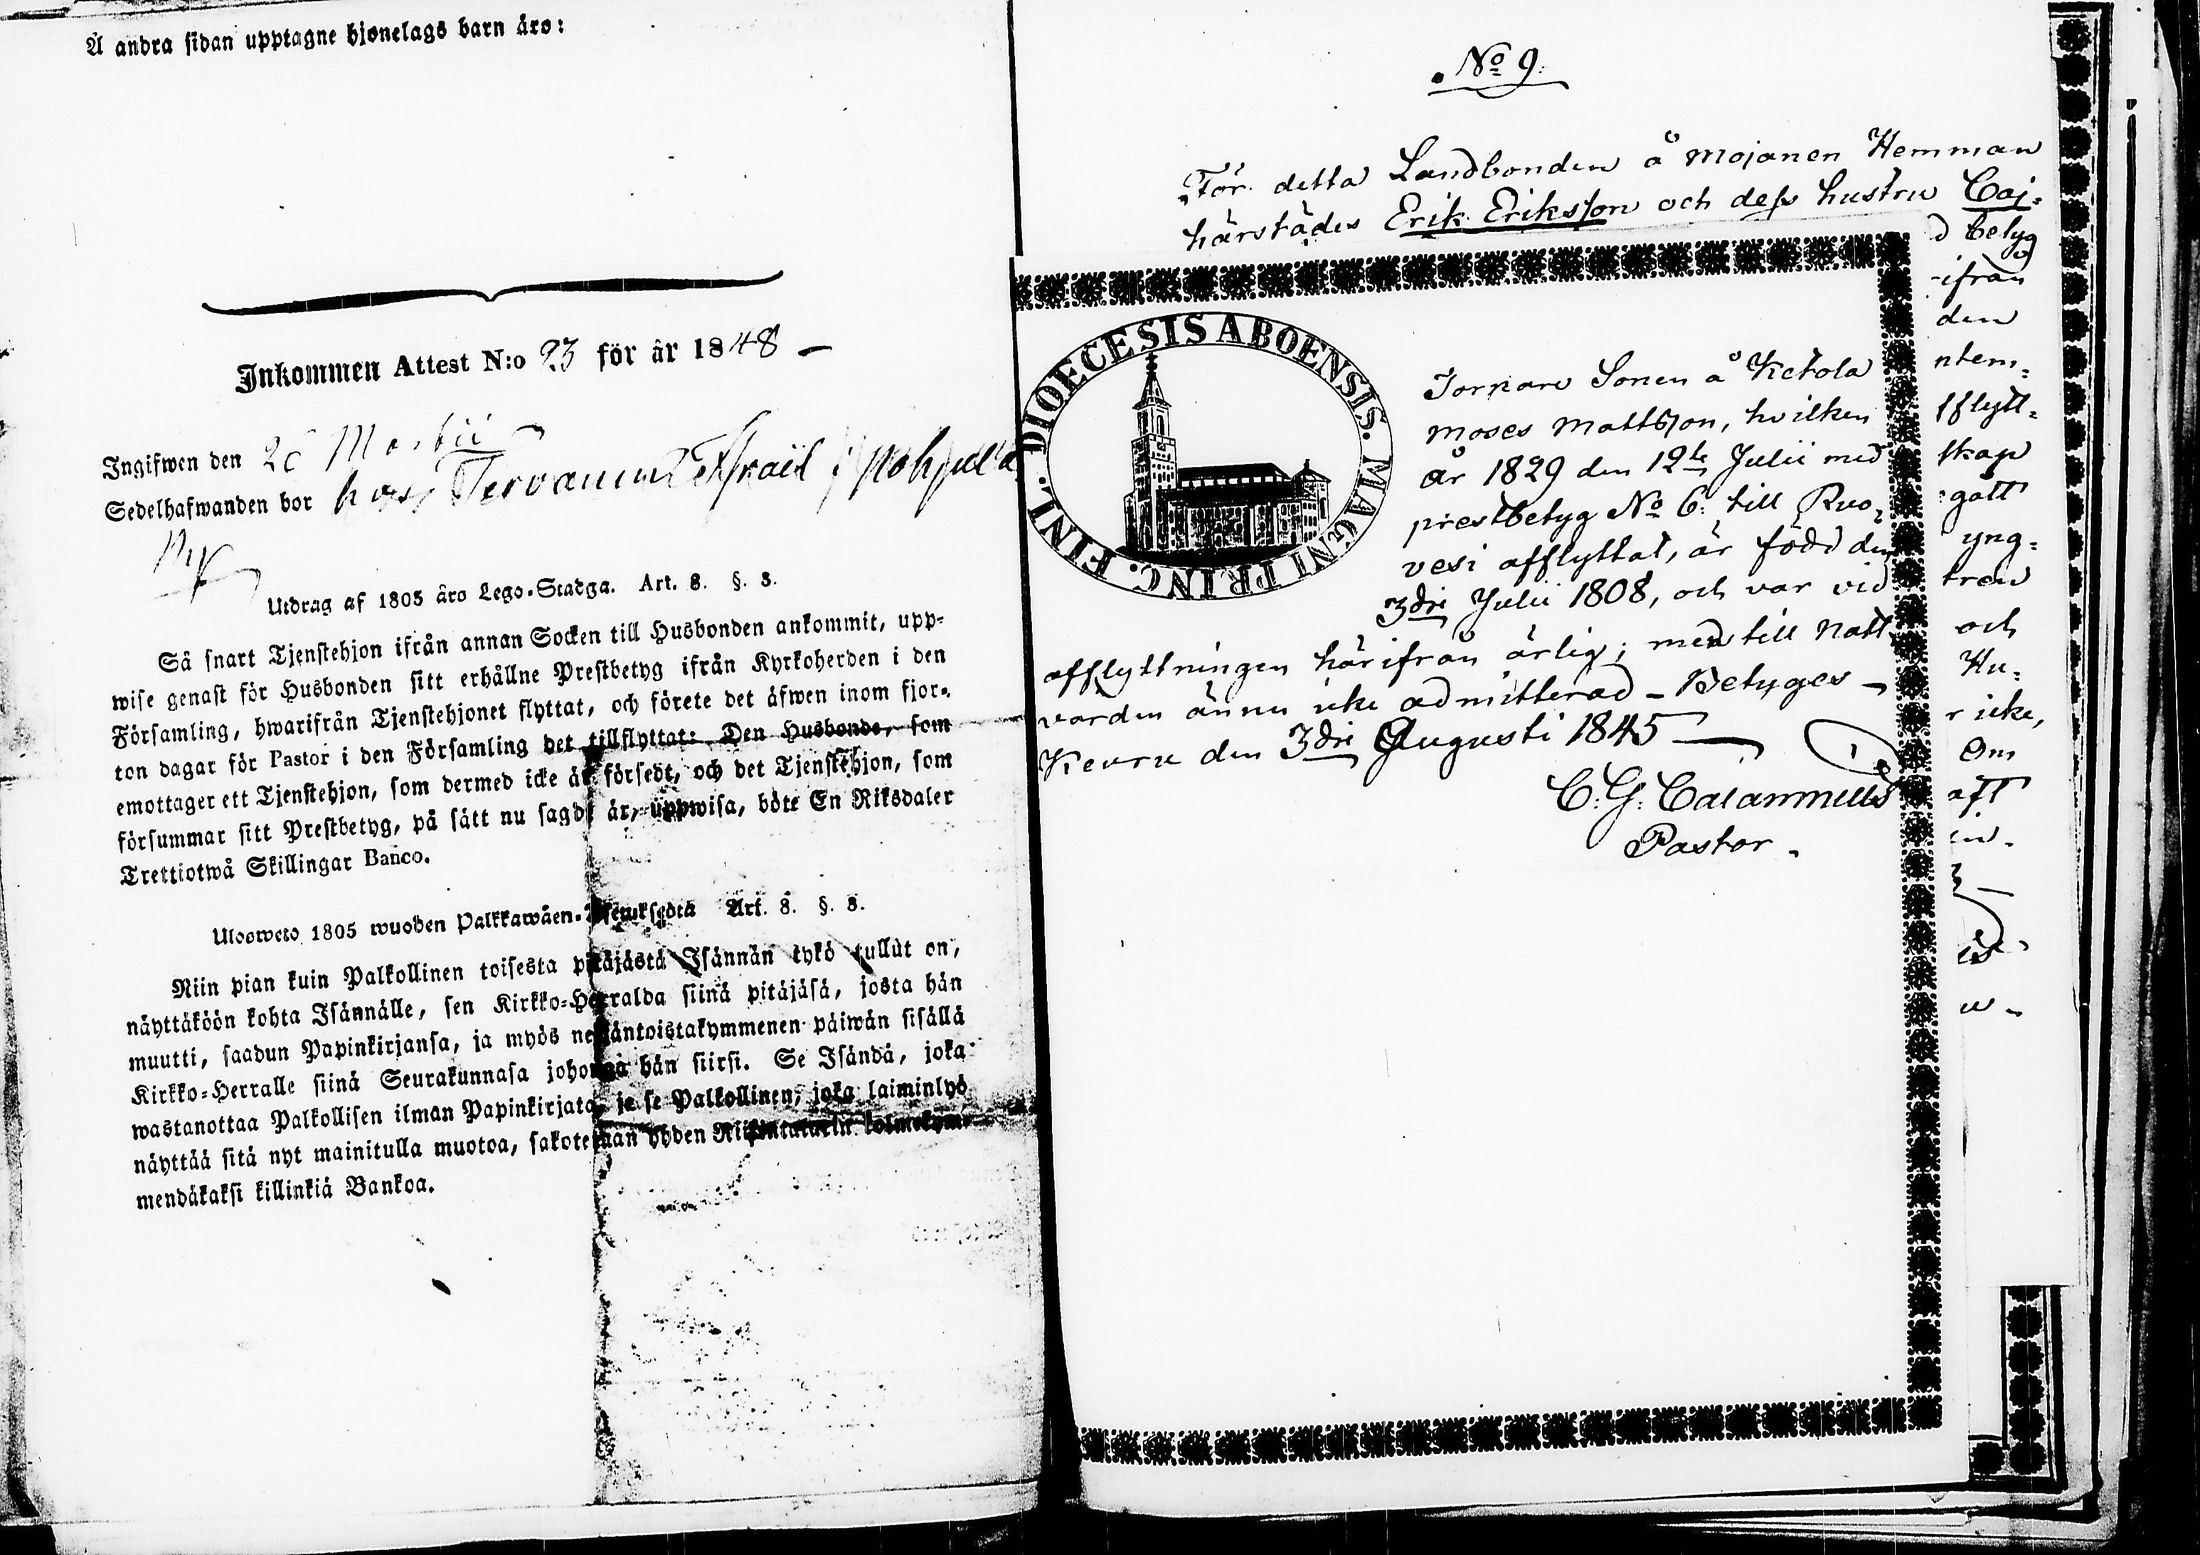 Å andra sidan upptagne hjonelags barn äro:
Inkommen Attest N:o 23 för år 1848 –
Ingifwen den 26 Martii
Sedelhafwanden bor hos Tervanen
Utdrag af 1805 åro Lego-Stadga. Art. 8. §. 3.
Så snart Tjenstehjon ifrån annan Socken till Husbonden ankommit, upp-
wise genast för Husbonden sitt erhållne Prestbetyg ifrån Kyrkoherden i den
Församling, hwarifrån Tjenstehjonet flyttat, och förete det äfwen inom fjor-
ton dagar för Pastor i den Församling det tillflyttat: Den Husbonde, som
emottager ett Tjenstehjon, som dermed icke är försedt, och det Tjenstehjon, som
försummar sitt Prestbetyg, på sätt nu sagdt är, uppwisa, böte En Riksdaler
Trettiotwå Skillingar Banco.
Ulosweto 1805 wuoden Palkkawäen- Art. 8. §. 3.
Niin pian kuin Palkollinen toisesta pitäjästä Isännän tykö tullut on,
näyttäköön kohta Isännälle, sen Kirkko-Herralda siinä pitäjäsä, josta hän
muutti, saadun Papinkirjansa, ja myös neljäntoistakymmenen päiwän sisällä
Kirkko-Herralle siinä Seurakunnasa johonga hän siirsi. Se Isändä, joka
wastanottaa Palkollisen ilman Papinkirjata, ja se Palkollinen, joka laiminlyö
näyttää sitä nyt mainitulla muotoa, sakotetaan yhden Riikintalarin kolmekym-
mendäkaksi killinkiä Bankoa.
No 9.
För detta Landbonden å Mojanen Hemman
härstädes Erik Eriksson och dess hustru Caj-
d betyg
ifrån
den
ntem-
fflytt-
skap
gått
yng-
tren
och
Hu-
r icke,
Om
aft
in.
DIOECESIS ABOENSIS. MAGNI PRINC. FINL.
Torpare Sonen å Ketola
Moses Mattsson, hvilken
år 1829 den 12te Julii med
prestbetyg No 6. till Ruo-
vesi afflyttat, är född den
3dri Julii 1808, och var vid
afflyttningen härifrån ärlig; men till Natt-
varden ännu icke admitterad – Betyges –
Keuru den 3dri Augusti 1845
C. G. Calamnius
Pastor.